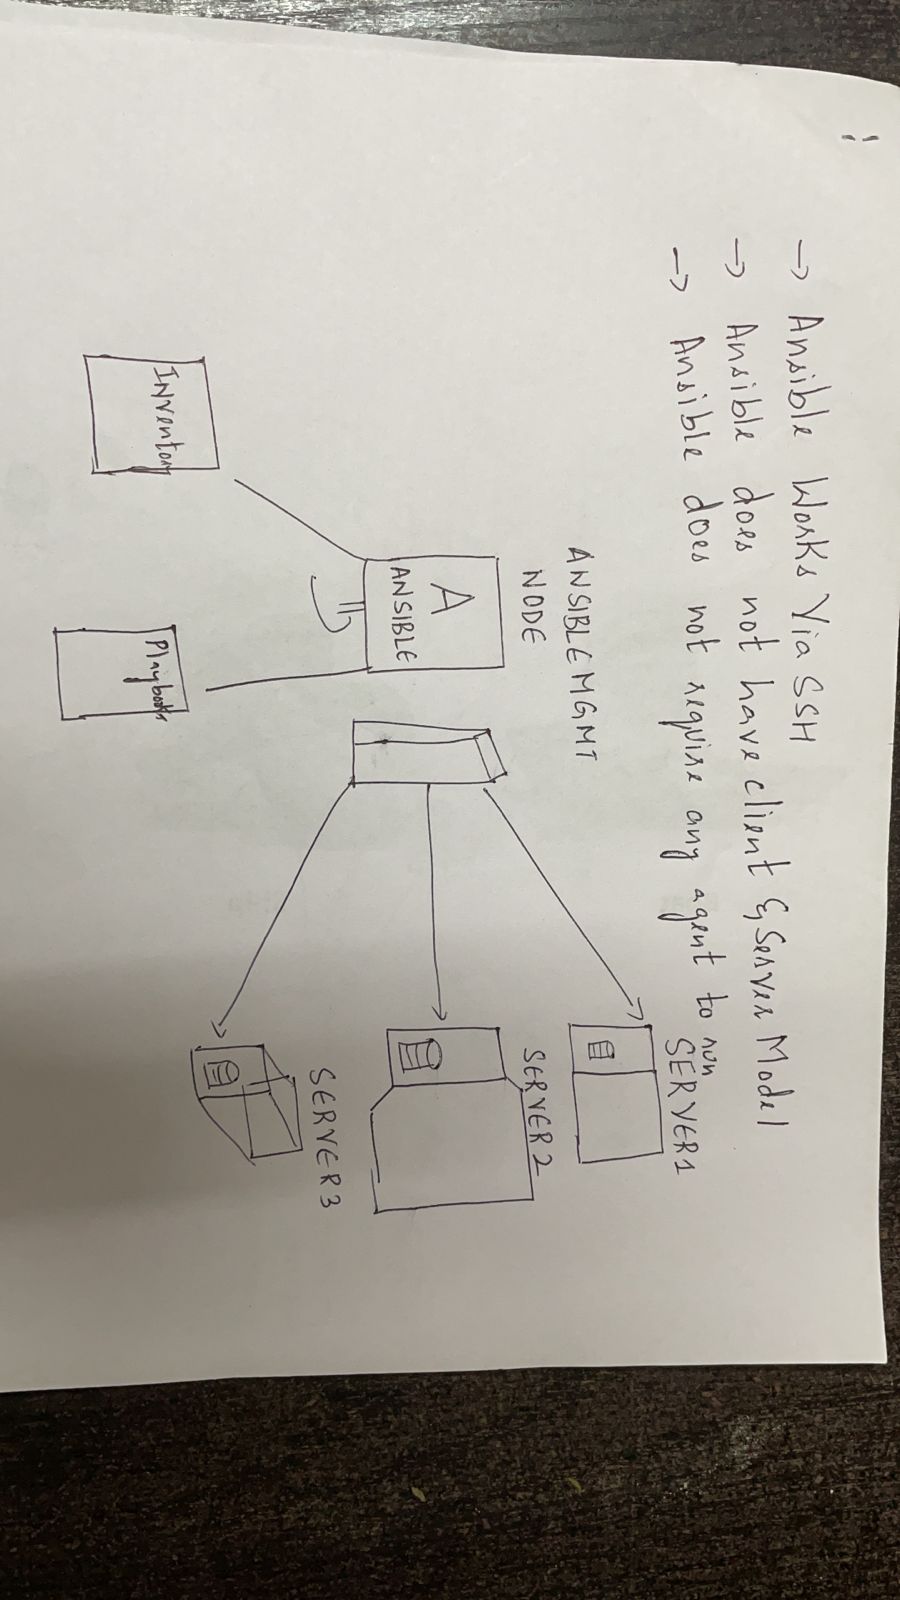 → Ansible Works Via SSH
→ Ansible does not have client & Server Model
→ Ansible does not require any agent to run
ANSIBLE MGMT
NODE
A
ANSIBLE
Inventory
Playbooks
SERVER1
SERVER 2
SERVER 3